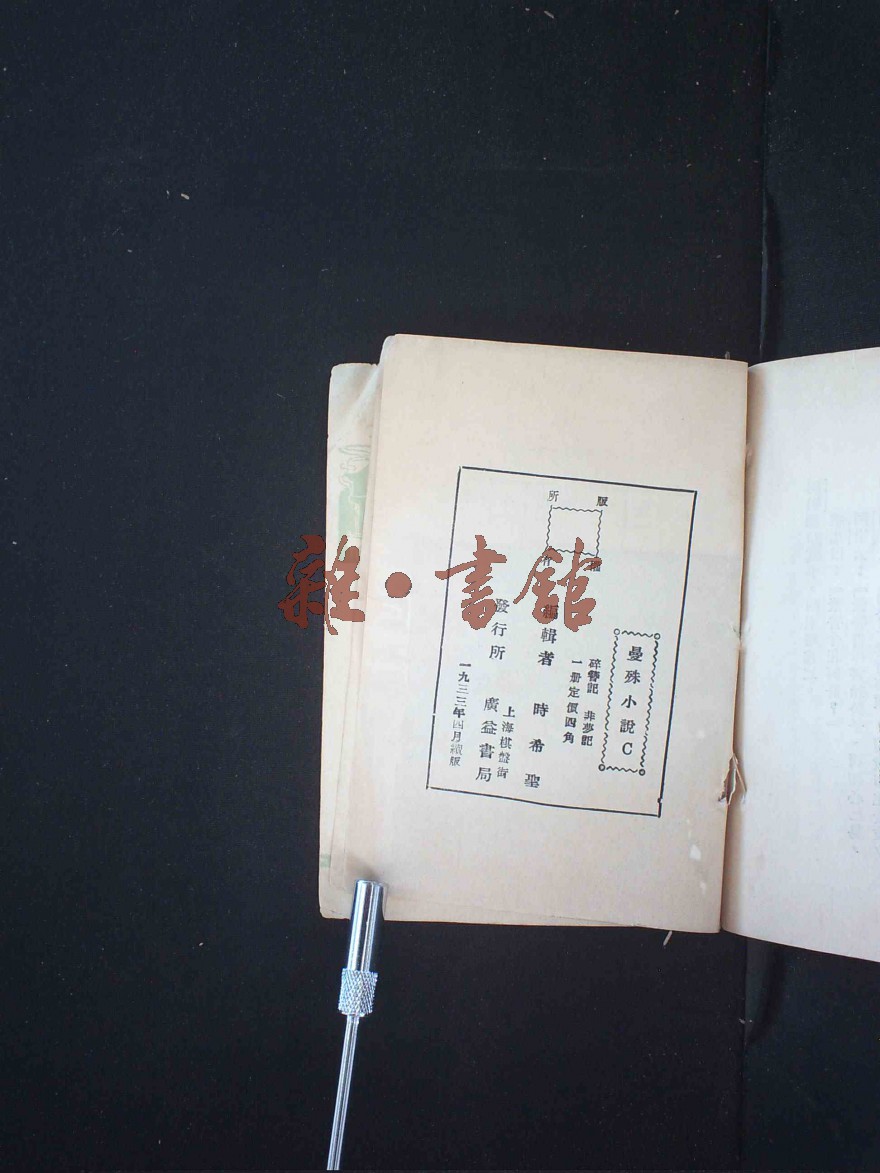 版權
所有
曼殊小說C
碎簪記 非夢記
一册定價四角
編輯者 時希聖
發行所 廣益書局
上海棋盤街
一九三三年四月續版
雜·書館